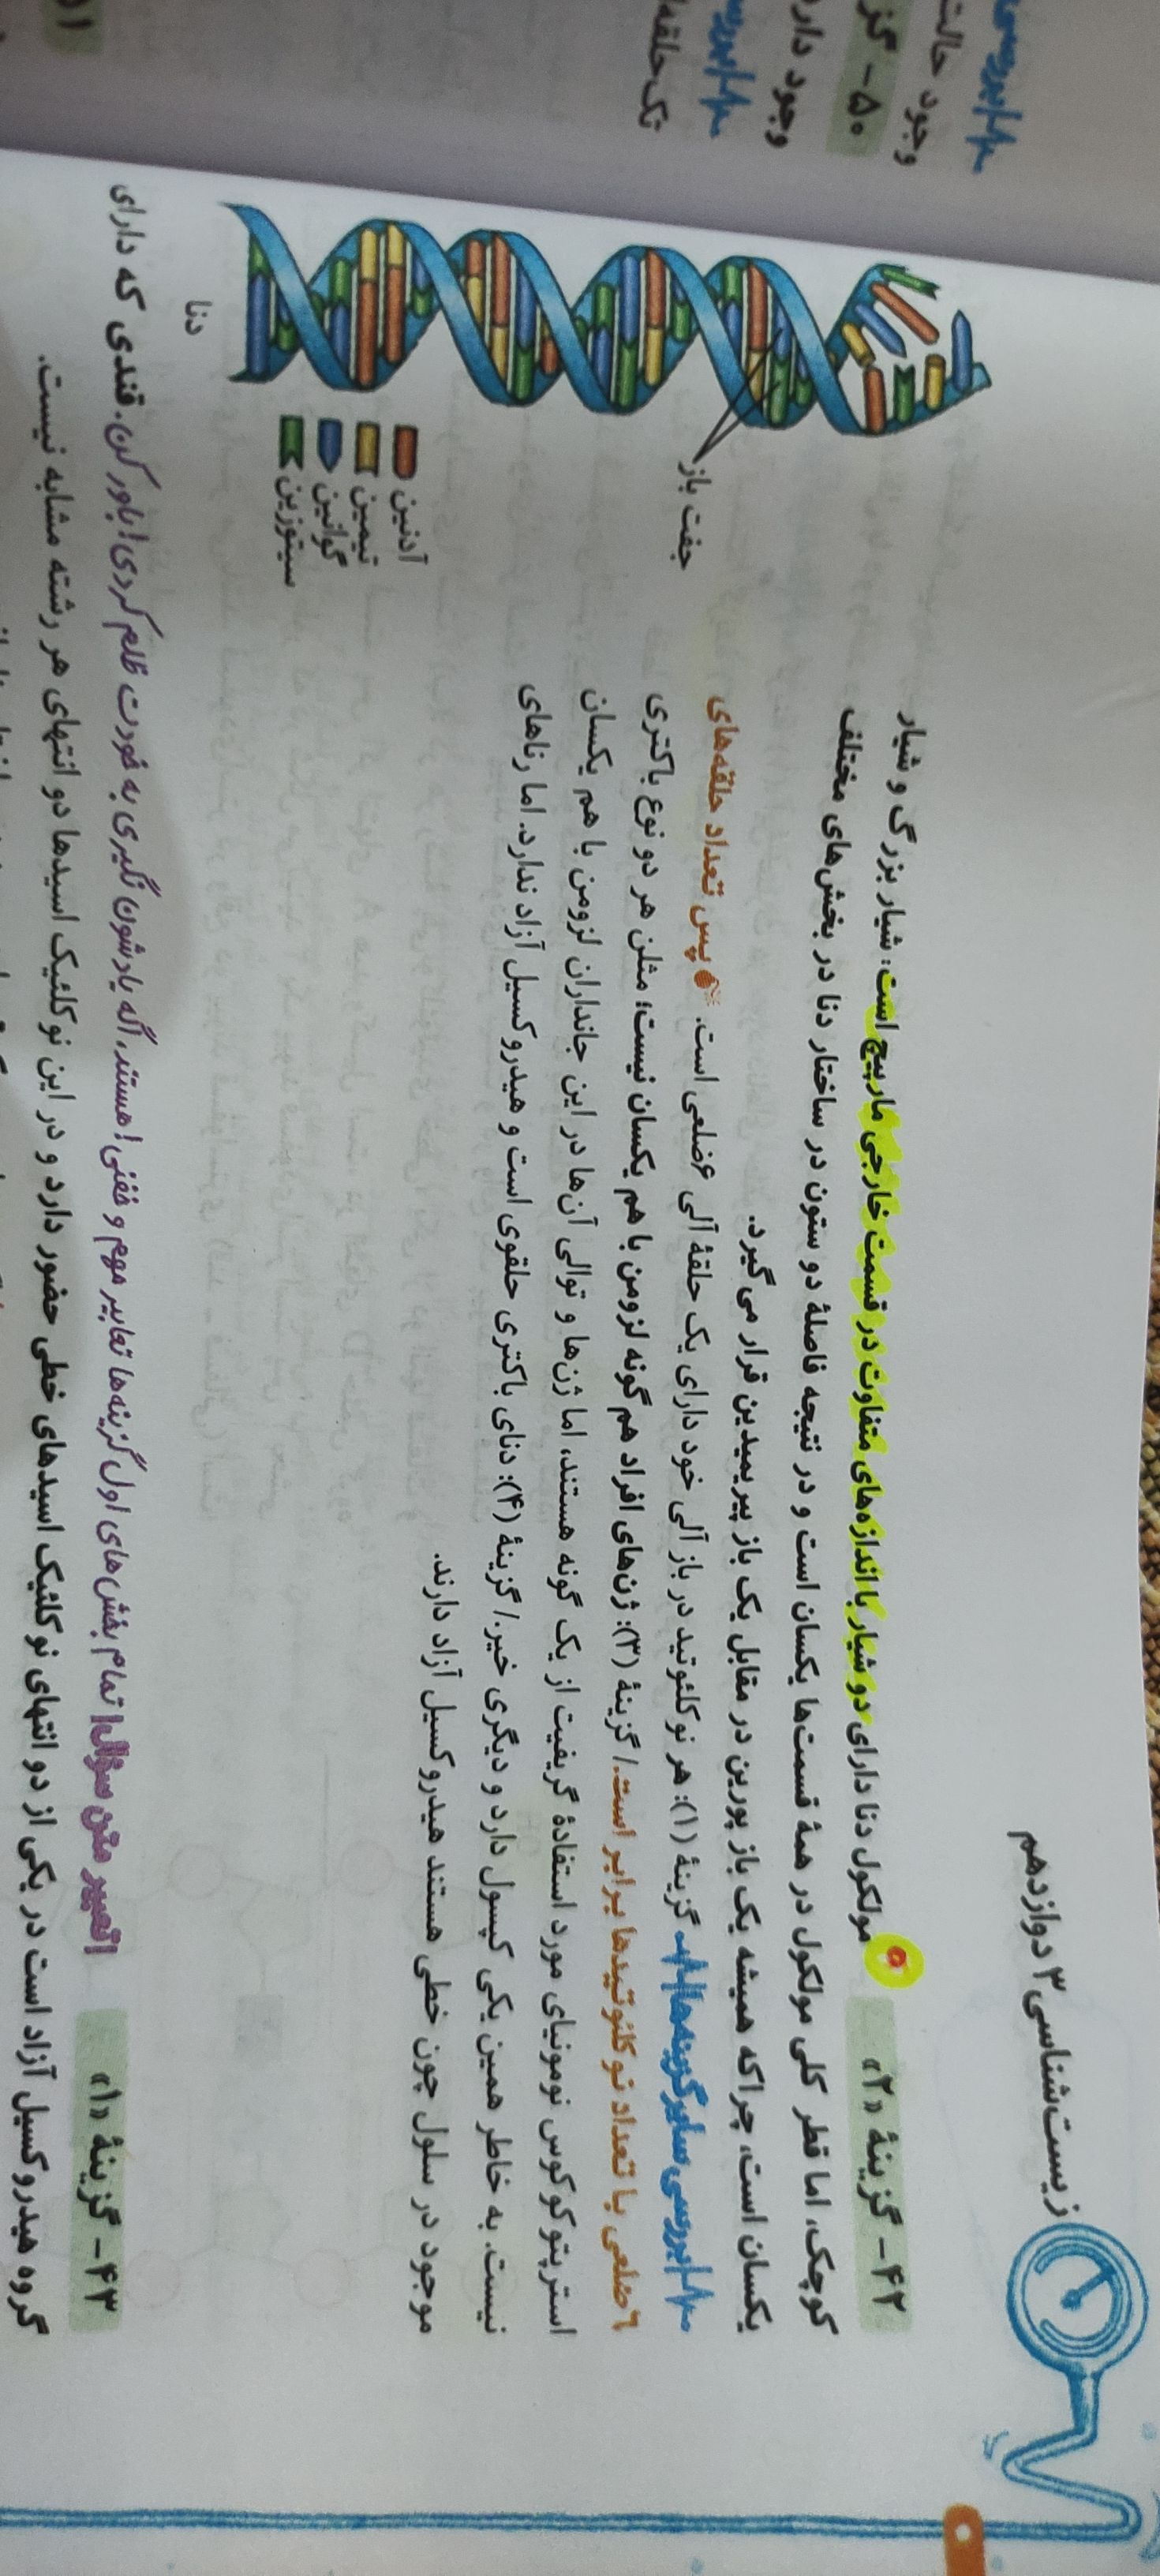 زیست‌شناسی ۳ دوازدهم
۴۲- گزینهٔ «۲» مولکول دنا دارای دو شیار با اندازه‌های متفاوت در قسمت خارجی مارپیچ است: شیار بزرگ و شیار
کوچک، اما قطر کلی مولکول در همهٔ قسمت‌ها یکسان است و در نتیجه فاصلهٔ دو ستون در ساختار دنا در بخش‌های مختلف
یکسان است، چراکه همیشه یک باز پورین در مقابل یک باز پیریمیدین قرار می‌گیرد.
بررسی سایر گزینه‌ها گزینهٔ (۱): هر نوکلئوتید در باز آلی خود دارای یک حلقهٔ آلی ۶ضلعی است. پس تعداد حلقه‌های
۶ضلعی با تعداد نوکلئوتیدها برابر است./ گزینهٔ (۳): ژن‌های افراد هم گونه لزومن با هم یکسان نیست؛ مثلن هر دو نوع باکتری
استرپتوکوکوس نومونیای مورد استفادهٔ گریفیت از یک گونه هستند، اما ژن‌ها و توالی آن‌ها در این جانداران لزومن با هم یکسان
نیست، به خاطر همین یکی کپسول دارد و دیگری خیر./ گزینهٔ (۴): دنای باکتری حلقوی است و هیدروکسیل آزاد ندارد. اما رناهای
موجود در سلول چون خطی هستند هیدروکسیل آزاد دارند.
جفت باز
آدنین
تیمین
گوانین
سیتوزین
دنا
۴۳- گزینهٔ «۱» تعبیر متن سؤال تمام بخش‌های اول گزینه‌ها تعابیر مهم و خفنی! هستند، اگه یادشون نگیری به خودت ظلم کردی! باور کن. قندی که دارای
گروه هیدروکسیل آزاد است در یکی از دو انتهای نوکلئیک اسیدهای خطی حضور دارد و در این نوکلئیک اسیدها دو انتهای هر رشته مشابه نیست.
بررسی
وجود حالت
۵۰- گز
وجود دار
بررسی
تک‌حلقه‌ا